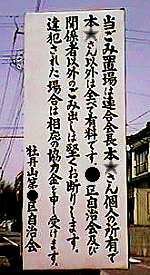 当ごみ置場は連合会長本★さん個人の所有で
本★さん以外は全べて有料です。●区自治会及び
関係者以外のごみ出しは堅くお断りします。
違犯された場合は相応の協力金を申し受けます。
牡丹山第●区自治会